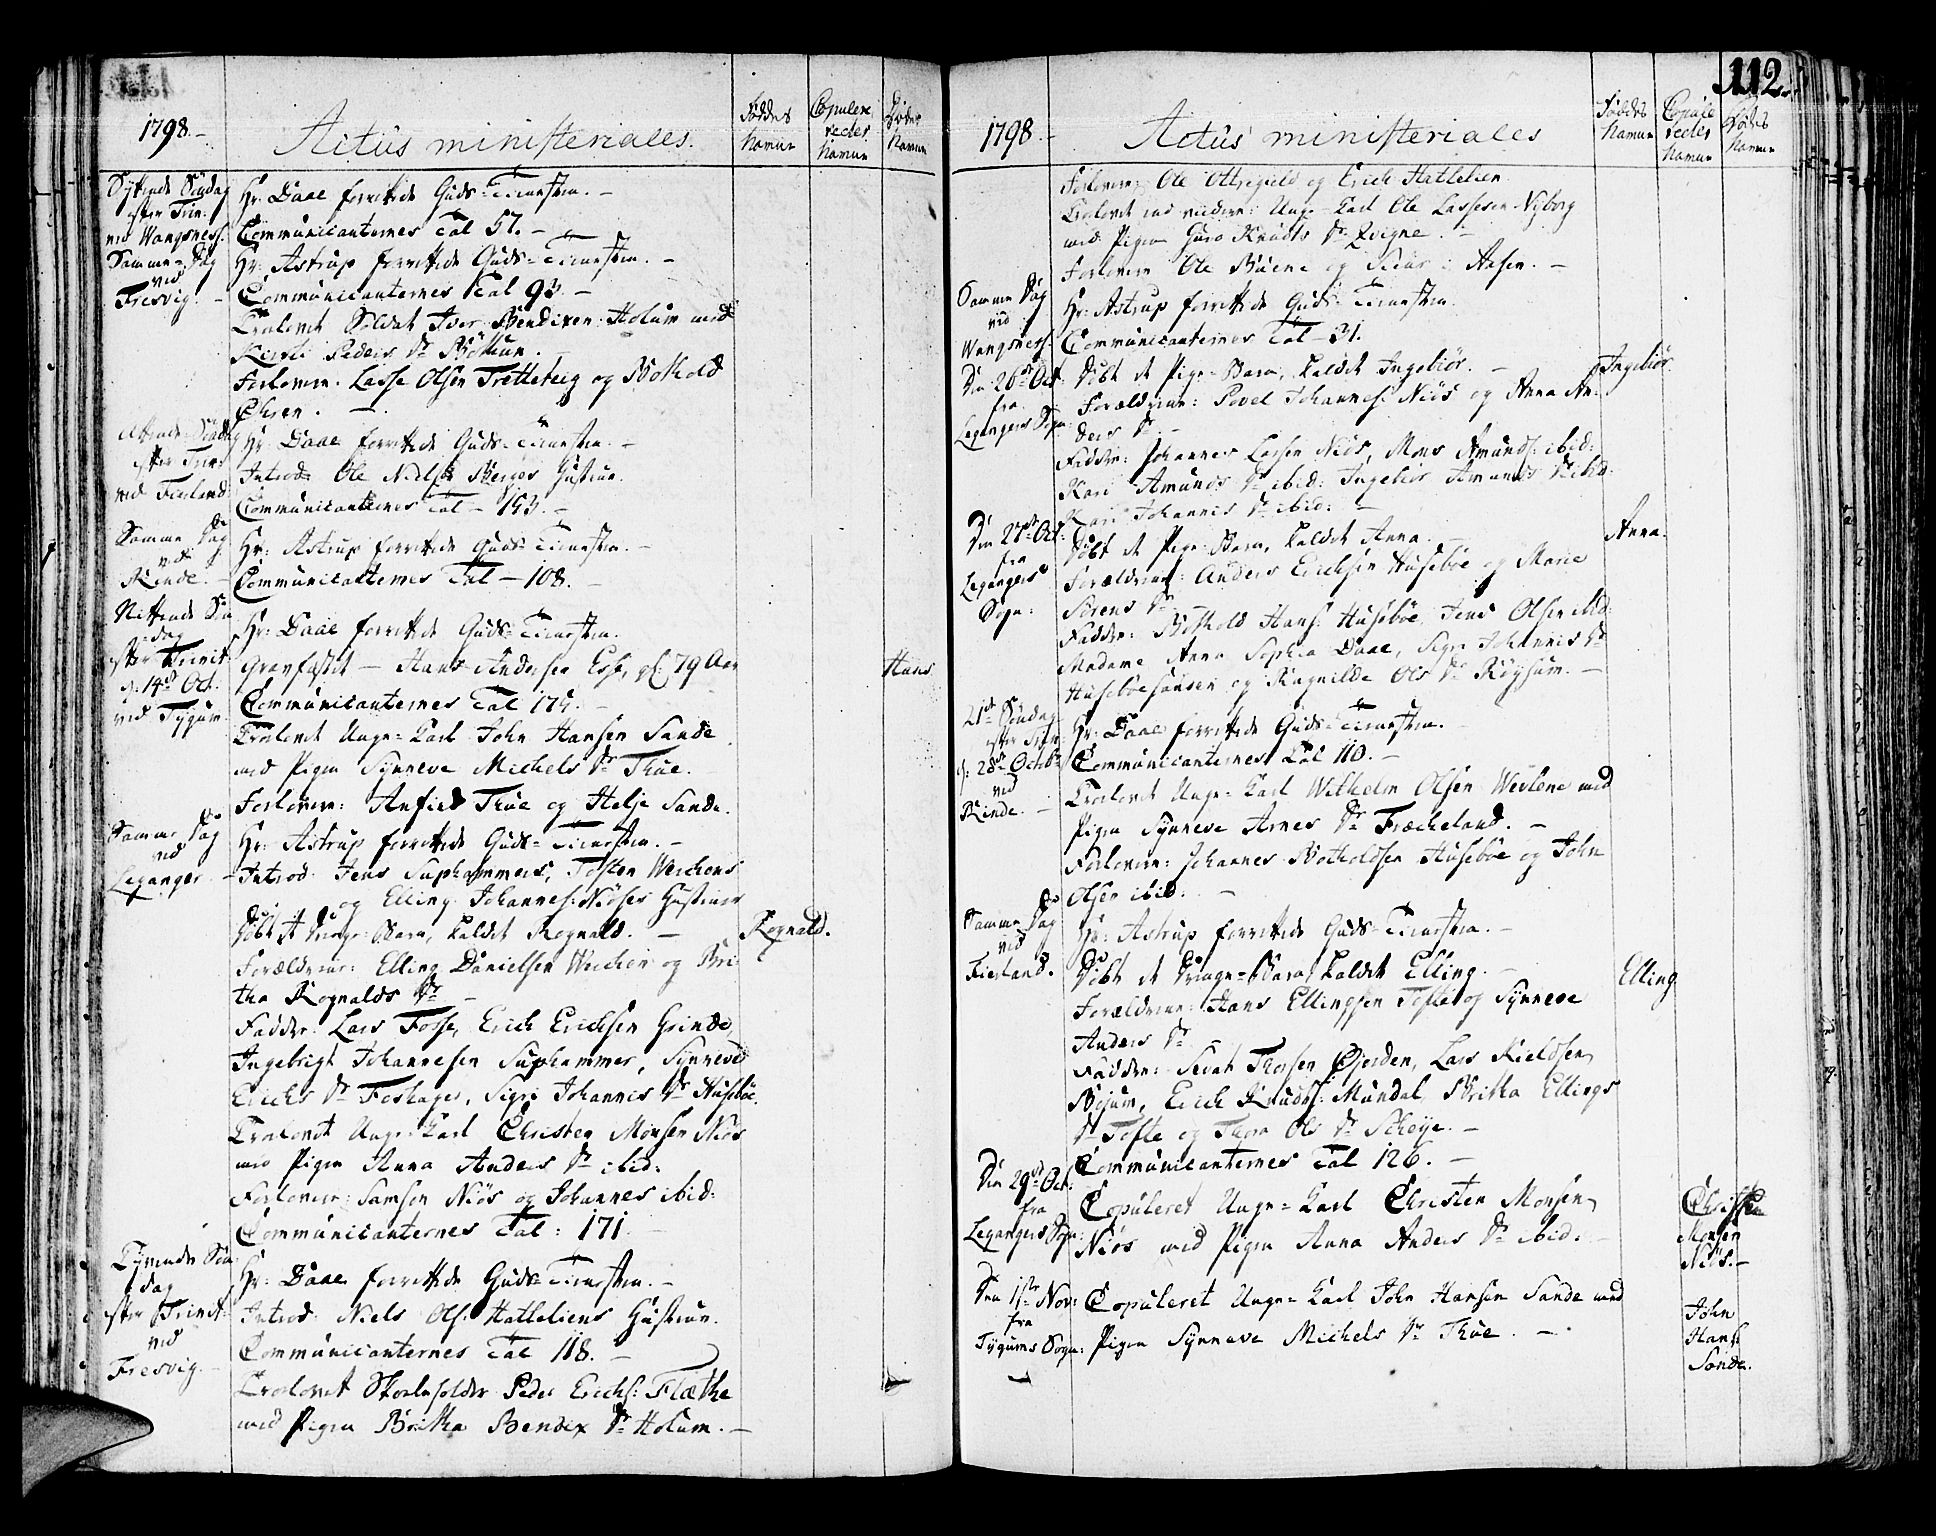 1798.-
Actus ministeriales.
Föddes Navne
Copuleredes Navne
Dödes Navne
Syttende Söndag
efter Trin:
ved Wangsness.
Hr: Daae forrettede Guds-Tienesten. -
Communicanternes Tal 57. -
Samme Dag
ved
Fresvig. -
Hr: Astrup forrettede Guds-Tienesten. -
Communicanternes Tal 93. -
Trolovet Soldat Iver Bendixen Holum med
Kirsti Peders Dr Böthun. -
Forlovere. Lasse Olsen Tretteteig og Bothold
Öhren. -
Attende Söndag
efter Trin:
ved Fierland
Hr: Daae forrettede Guds-Tienesten. -
Introd: Ole Nielsen Berges Hustrue.
Communicanternes Tal - 153. -
Samme Dag
ved
Rinde. -
Hr: Astrup forrettede Guds-Tienesten. -
Communicanternes Tal - 108. -
Nittende Sön
dag
efter Trinit:
d: 14de Oct.
ved Tygum.
Hr: Daae forrettede Guds-Tienesten.
Gravfæstet - Hans Andersen Esse, gl: 79 Aar
Hans
Communicanternes Tal 175. -
Trolovet Unge-Karl John Hansen Sande
med Pigen Synneve Michels Dr Thue.
Forlovere: Anfind Thue og Helje Sande.
Samme Dag
ved
Leganger. -
Hr: Astrup forrettede Guds-Tienesten. -
Introd: Jens Suphammers, Tosten Werchens
og Elling Johannes: Niöses Hustruer
Döbt et Drenge-Barn, kaldet Rognald. -
Rognald.
Forældrene: Elling Danielsen Werchen og Bri
tha Rognalds Dr -
Fadder: Lars Fosse, Erich Erichsen Grinde,
Ingebrigt Johannesen Suphammer, Synneve
Erichs Dr Foshagen, Sigri Johannis Dr Huseböe.
Trolovet Unge-Karl Christen Monsen Niös
med Pigen Anna Anders Dr ibid:
Forlovere: Samson Niös og Johannes ibid:
Communicanternes Tal: 171
Tyvende Sön
dag
efter Trinit:
ved
Fresvig. -
Hr: Daae forrettede Guds-Tienesten. -
Introd: Niels Ols: Hatleliens Hustrue.
Communicanternes Tal 118. -
Trolovet Peder Erichs: Flæthe
med Pigen Britha Bendix Dr Holum. -
112.
1798. -
Actus ministeriales
Föddes Navne
Copuleredes Navne
Dödes Navne
Forlovere: Ole og Erich Hatlelien.
Trolovet ved videre: Unge-Karl Ole Lassesen Nyborg
med Pigen Guro Knudts Dr Qvigne. -
Forlovere Ole Buene og i Aasen. -
Samme Dag
ved
Wangsness.
Hr: Astrup forrettede Guds-Tienesten.
Communicanternes Tal - 31.
Den 26de Oct.
fra
Legangers Sogn.
Döbt et Pige-Barn, kaldet Ingebiör. -
Ingebiör
Forældrene: Povel Johannes: Niös og Anna An-
ders Dr. -
Fadder: Johannes Larsen Niös, Mons Amunds: ibid:
Kari Amunds Dr ibid: Ingebiör Amunds Dr ibid:
Kari Johannis Dr ibid: -
Den 27de Oct:
fra
Legangers
Sogn:
Döbt et Pige-Barn, kaldet Anna. -
Anna.
Forældrene: Anders Erichsen Huseböe og Marie
Sörens Dr
Fadder: Bothold Hans: Huseböe, Jens Olsen ibid:
Madame Anna Sophia Daae, Sigri Johannis Dr
Huseböesanden og Ragnilde Ols Dr Röysum. -
21de Söndag
efter Trin:
d: 28de Octob:
ved
Rinde. -
Hr: Daae forrettede Guds-Tienesten. -
Communicanternes Tal 110. -
Trolovet Unge-Karl Wilhelm Olsen Wevlene med
Pigen Synneve Arnes Dr Fræcheland. -
Forlovere: Johannes Botholdsen Huseböe og John
Olsen ibid: -
Samme Dag
ved
Fierland.
Hr: Astrup forrettede Guds-Tienesten. -
Döbt et Drenge-Barn, kaldet Elling. -
Elling
Forældrene: Hans Ellingsen Tofte og Synneve
Anders Dr
Fadder: Sivat Thorsen Öjorden, Lars Kieldsen
Böjum, Erich Knuds: Mundal, Britha Ellings
Dr Tofte og Thora Ols Dr Scheye. -
Communicanternes Tal 126. -
Den 29de Oct:
fra
Legangers Sogn:
Copuleret Unge-Karl Christen Monsen
Niös med Pigen Anna Anders Dr ibid: -
Christen
Monsen
Niös. -
Den 1ste Nov:
fra
Tygums Sogn:
Copuleret Unge-Karl John Hansen Sande med
Pigen Synneve Michels Dr Thue. -
John
Hans:
Sande.